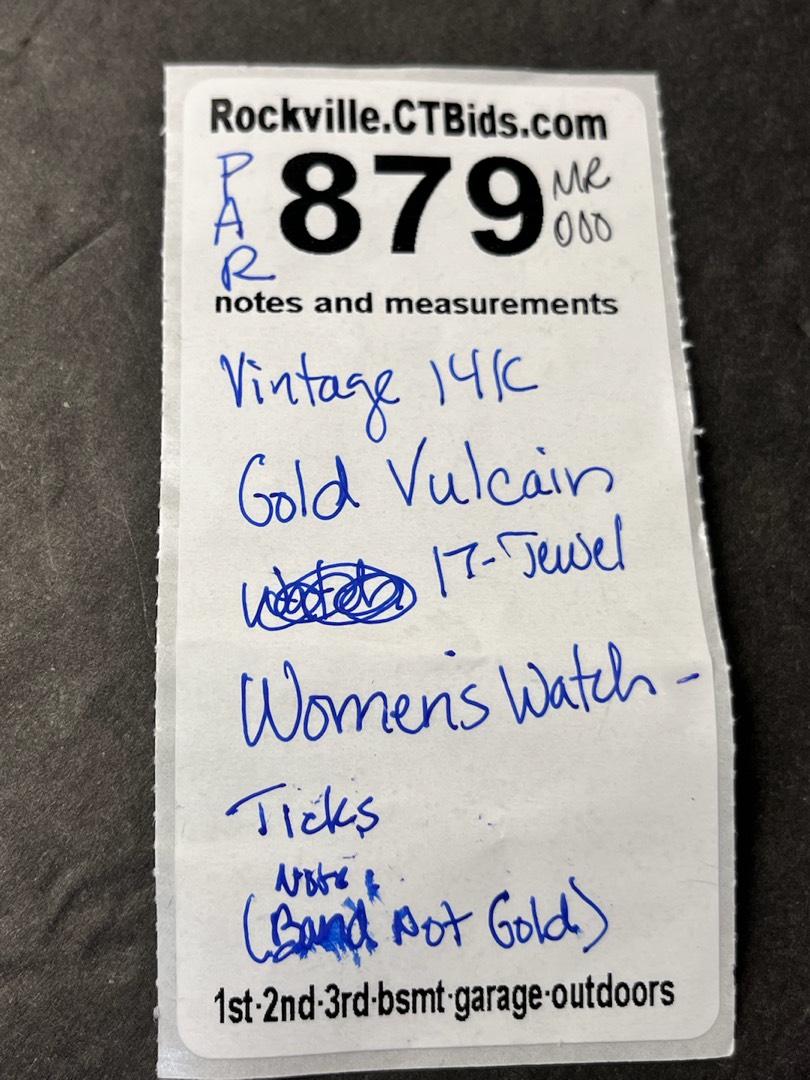 Rockville.CTBids.com
PAR 879 MR
000
notes and measurements
Vintage 14K
Gold Vulcain
17-Jewel
Women's Watch -
Ticks
Note:
(Band Not Gold)
1st·2nd·3rd·bsmt·garage·outdoors